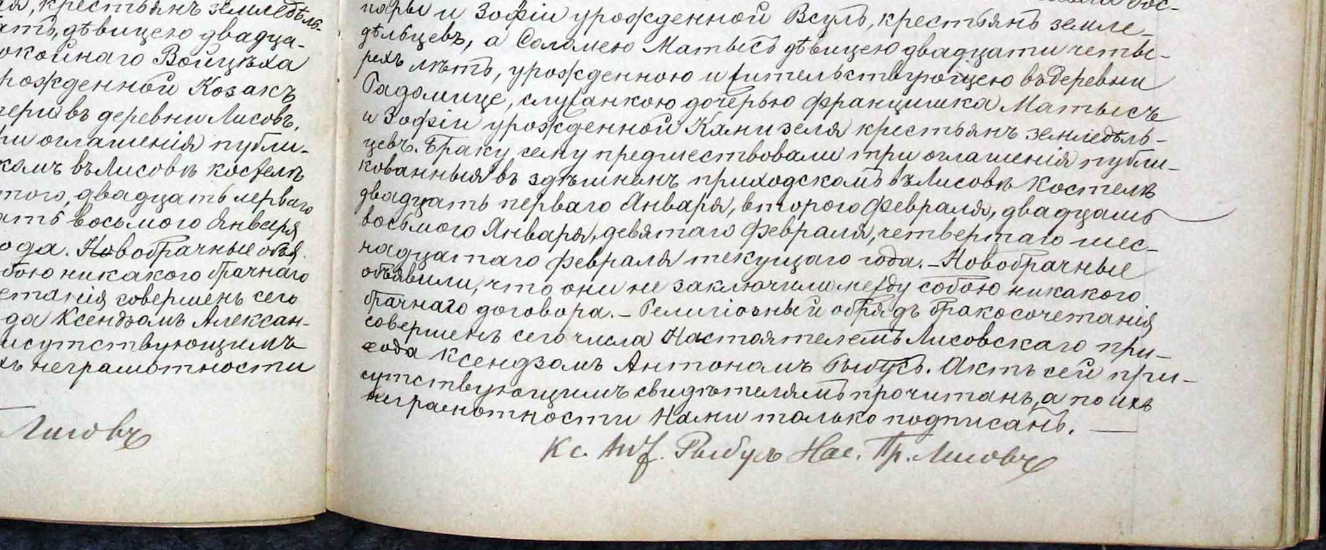 крестьянъ земледѣль-
дѣвицею двадца-
покойнаго Войцѣха
рожденной Козакъ
въ деревни Лисовъ,
оглашенія публи-
въ Лисовѣ костелѣ
двадцать перваго
восьмого Января
года. Новобрачные объя-
собою никакого брачнаго
совершенъ сего
Ксендзомъ Алексан-
присутствующимъ
неграмотности
Лисовъ
и Зофіи урожденной Всулъ, крестьянъ земле-
дѣльцевъ, а Соломею Матысъ дѣвицею двадцати четы-
рехъ лѣтъ, урожденною и жительствующею въ деревни
Гадомице, служанкою дочерью Францишка Матысъ
и Зофіи урожденной Канизеля крестьянъ земледѣль-
цевъ. Браку сему предшествовали три оглашенія публи-
кованныя въ здѣшнемъ приходскомъ въ Лисовѣ Костелѣ
двадцать перваго Января, второго Февраля, двадцать
восьмого Января, девятаго Февраля, четвертаго шес-
надцатаго Февраля текущаго года. – Новобрачные
объявили, что они не заключили между собою никакого
брачнаго договора. – Религіозный обрядъ бракосочетанія
совершенъ сего числа Настоятелемъ Лисовскаго при-
хода Ксендзомъ Антономъ. Актъ сей при-
сутствующимъ свидѣтелямъ прочитанъ, а по ихъ
неграмотности Нами только подписанъ. —
Кс. Ант. Рыбулъ Нас. Пр. Лисовъ